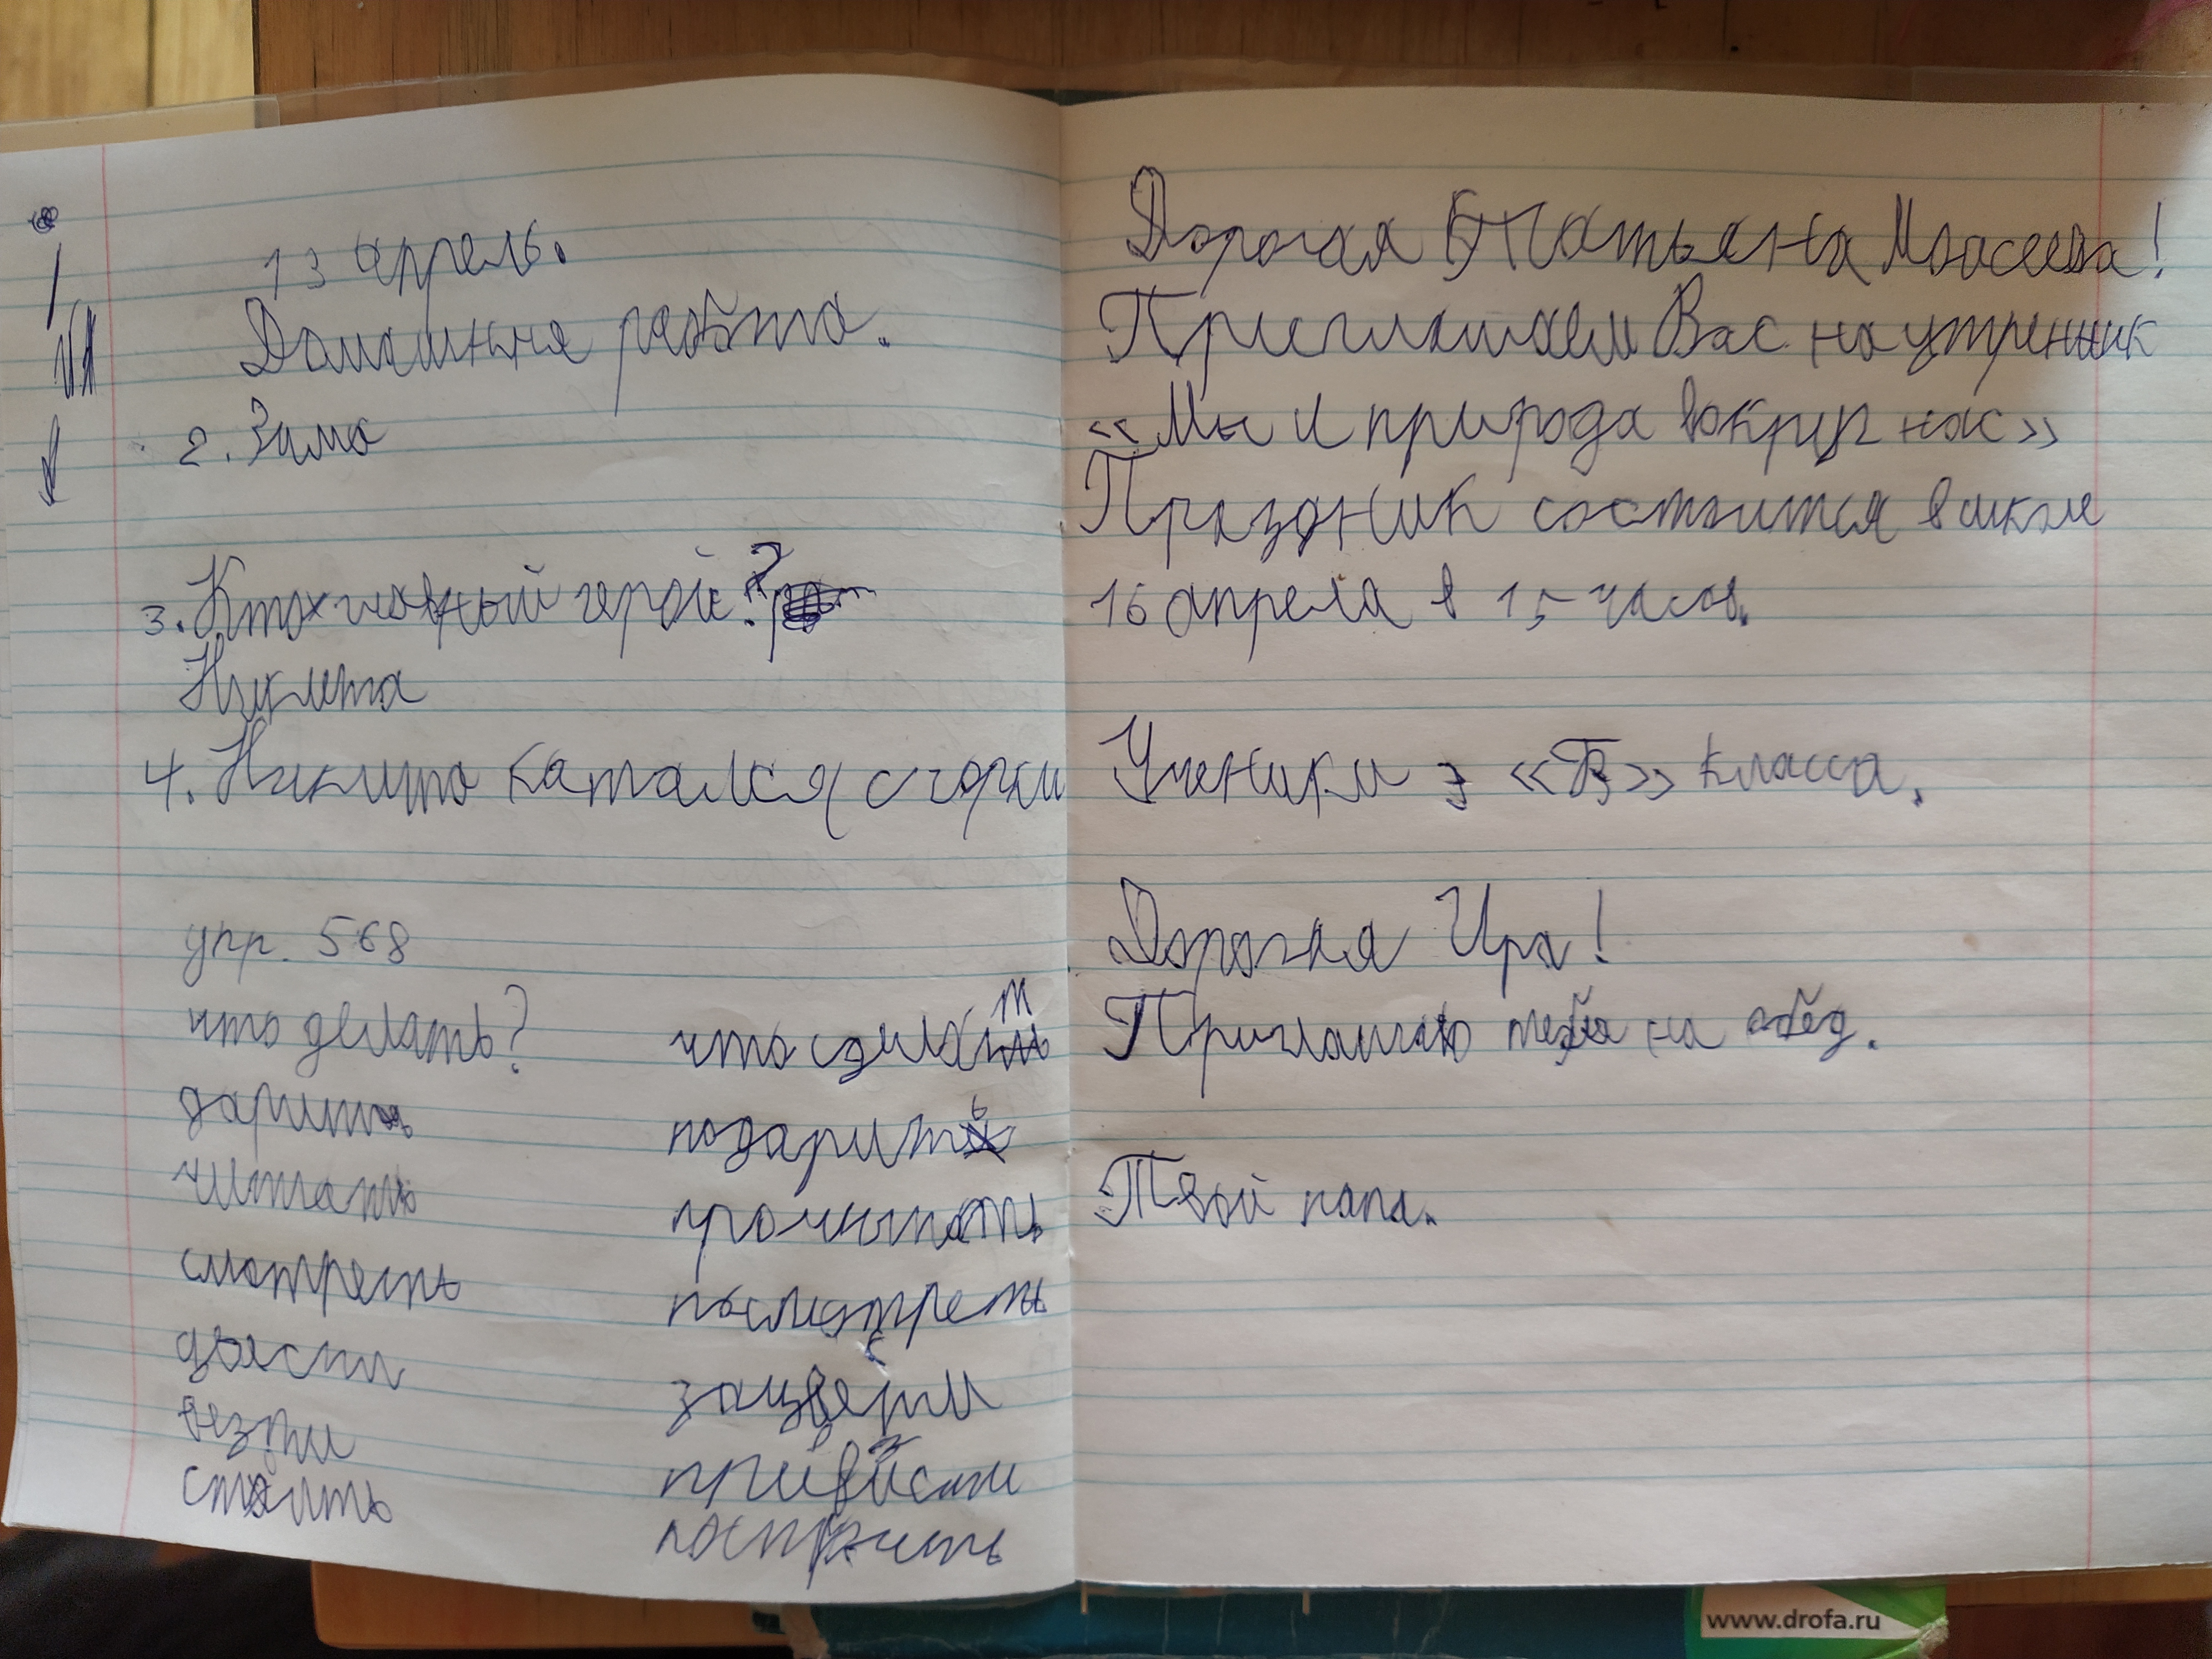 13 апрель.
Домашняя работа.
2. Зима
3. Кто главный герой?
Никита
4. Никита катался с горки
упр. 568
что делать? что сделать
дарить подарить
читать прочитать
смотреть посмотреть
цвести зацвести
везти привезти
строить построить
Дорогая Татьяна Моисеевна!
Приглашаем Вас на утренник
«Мы и природа вокруг нас»
Праздник состоится в школе
16 апреля в 15 часов.
Ученики 3 «Б» класса.
Дорогая Ира!
Приглашаю тебя на обед.
Твой папа.
www.drofa.ru